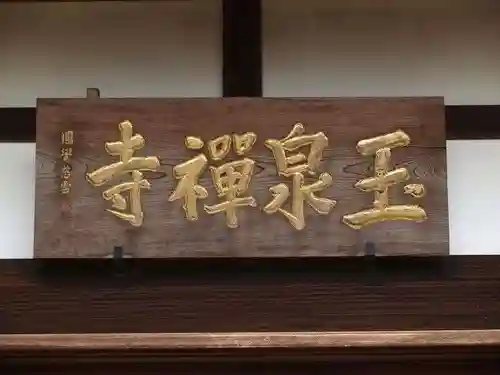 玉泉禪寺